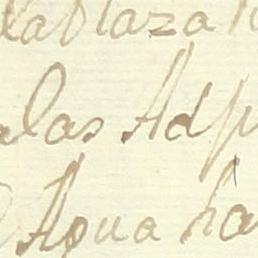 la Plaza
alas Adp
Agua ha